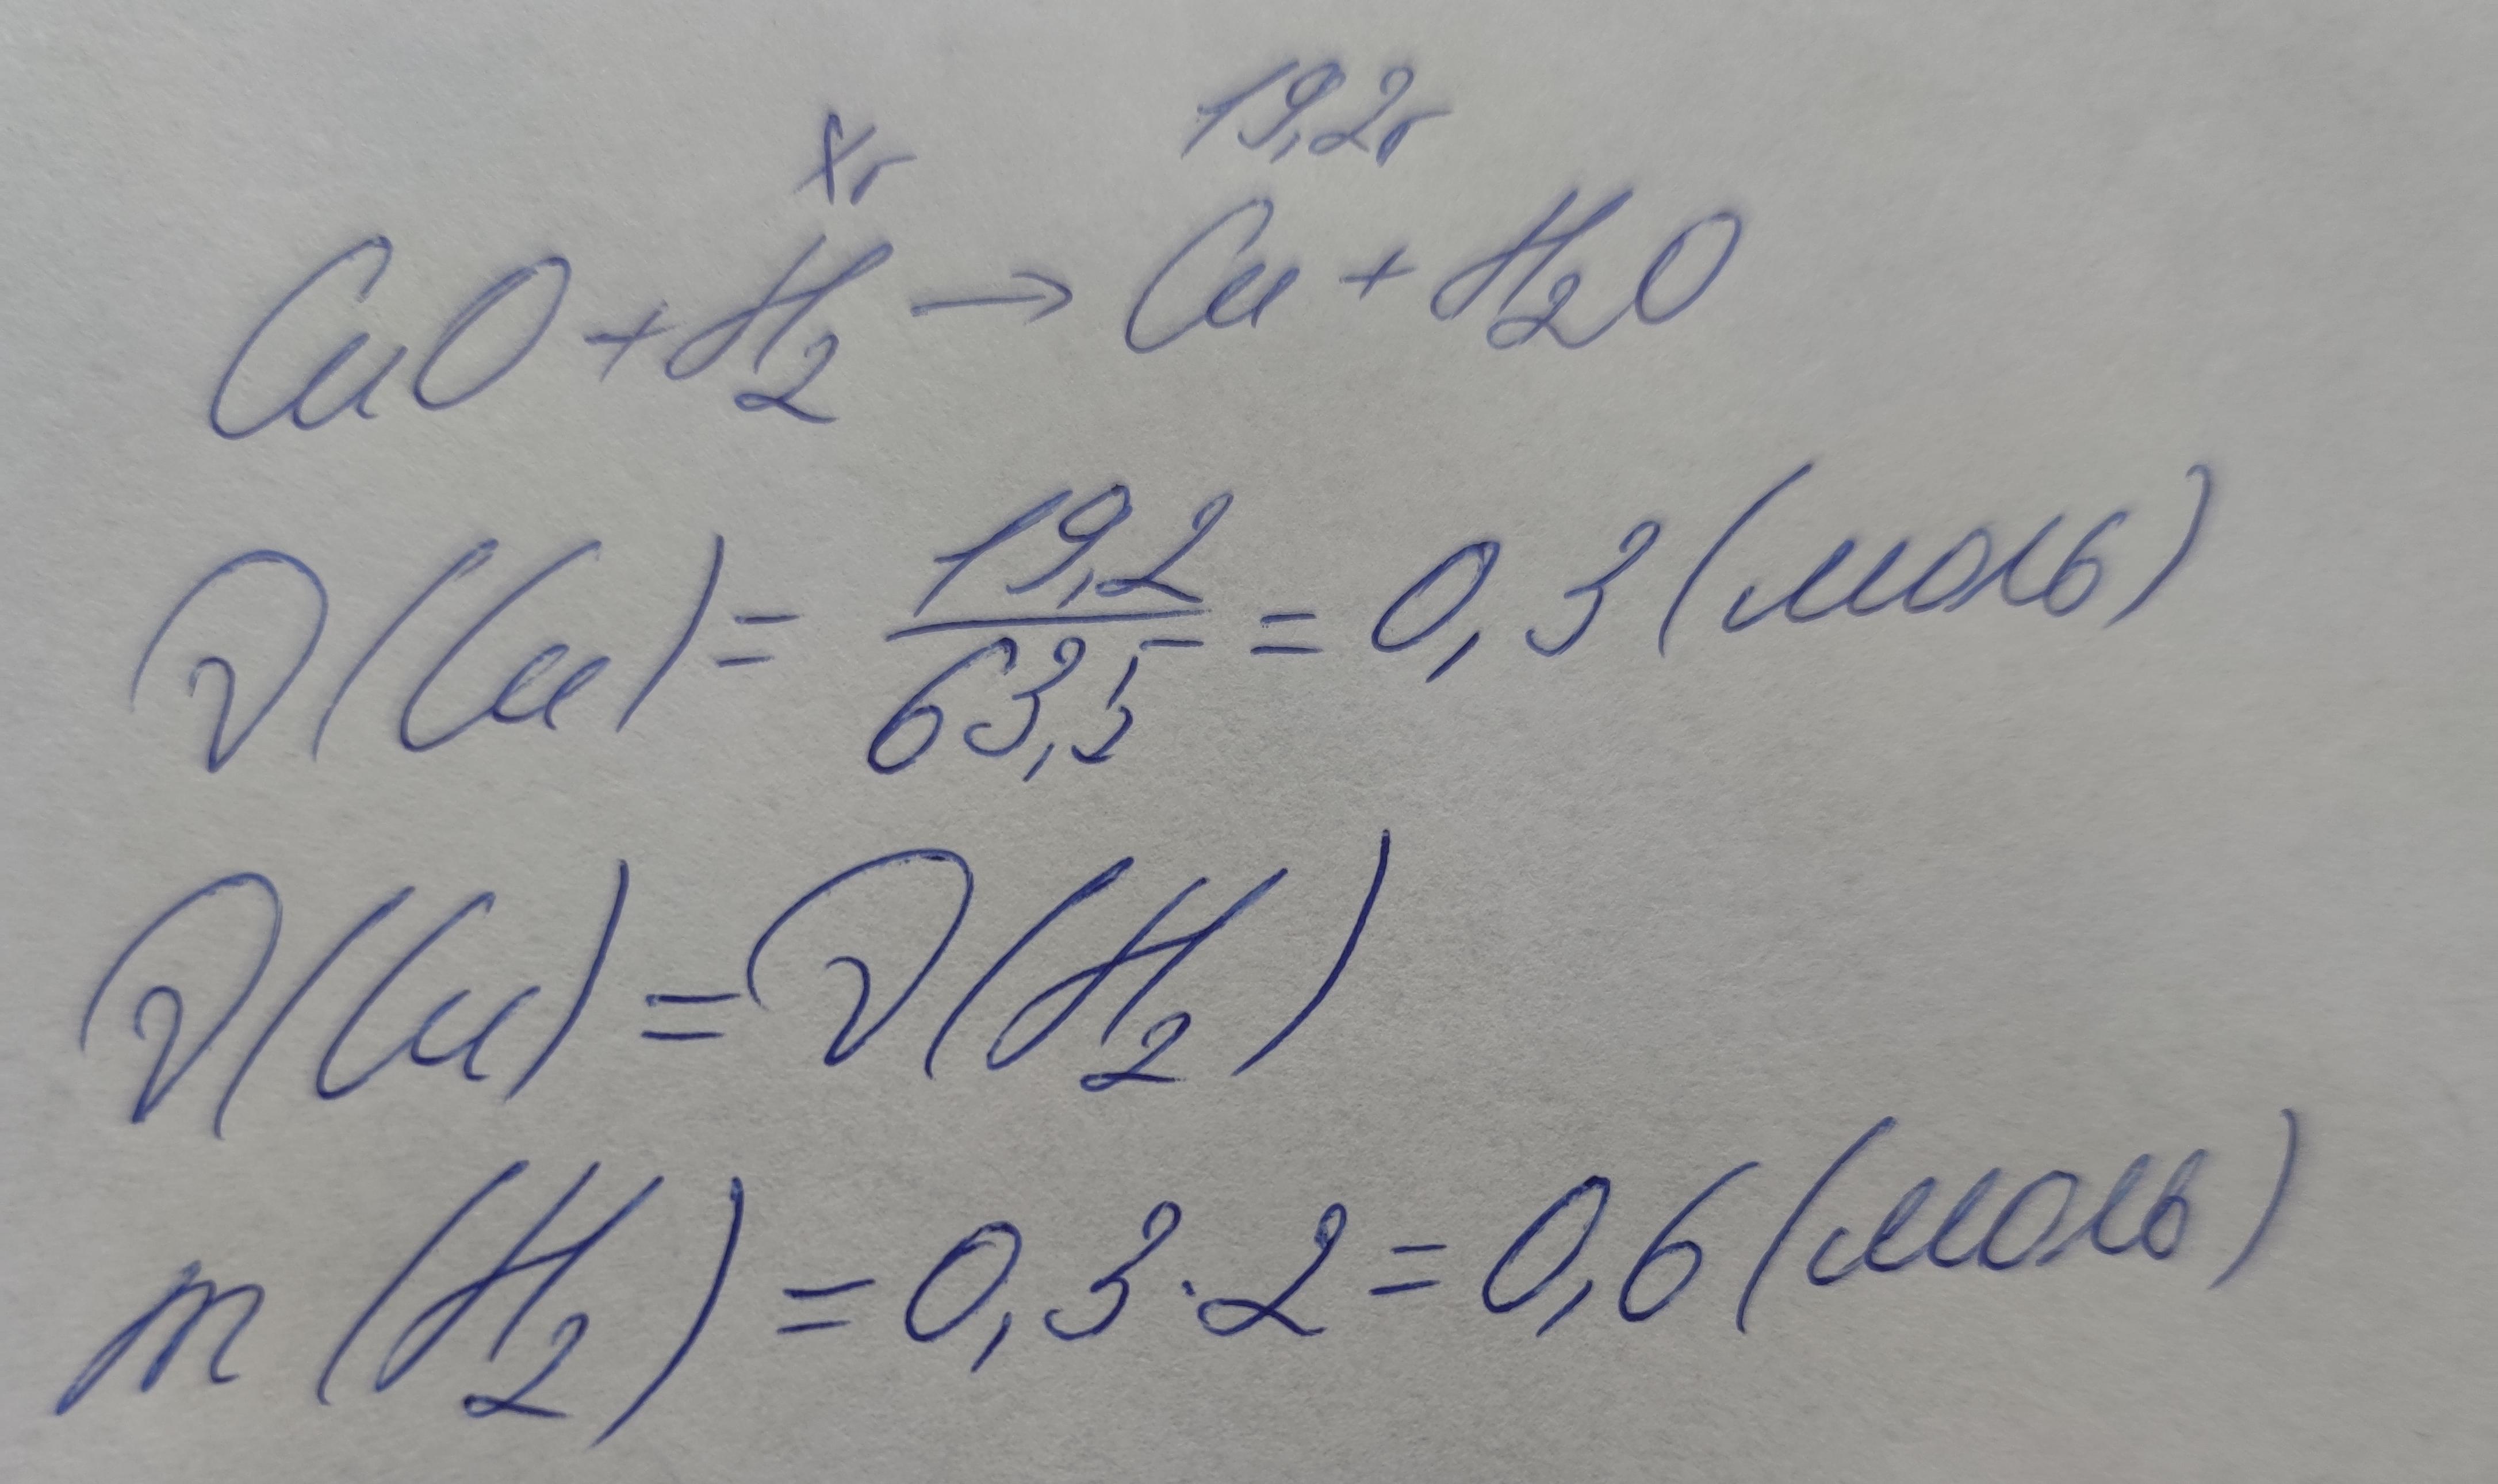 хг 19,2г
CuO + H₂ → Cu + H₂O
ν(Cu) = 19,2/63,5 = 0,3 (моль)
ν(Cu) = ν(H₂)
m(H₂) = 0,3 · 2 = 0,6 (моль)